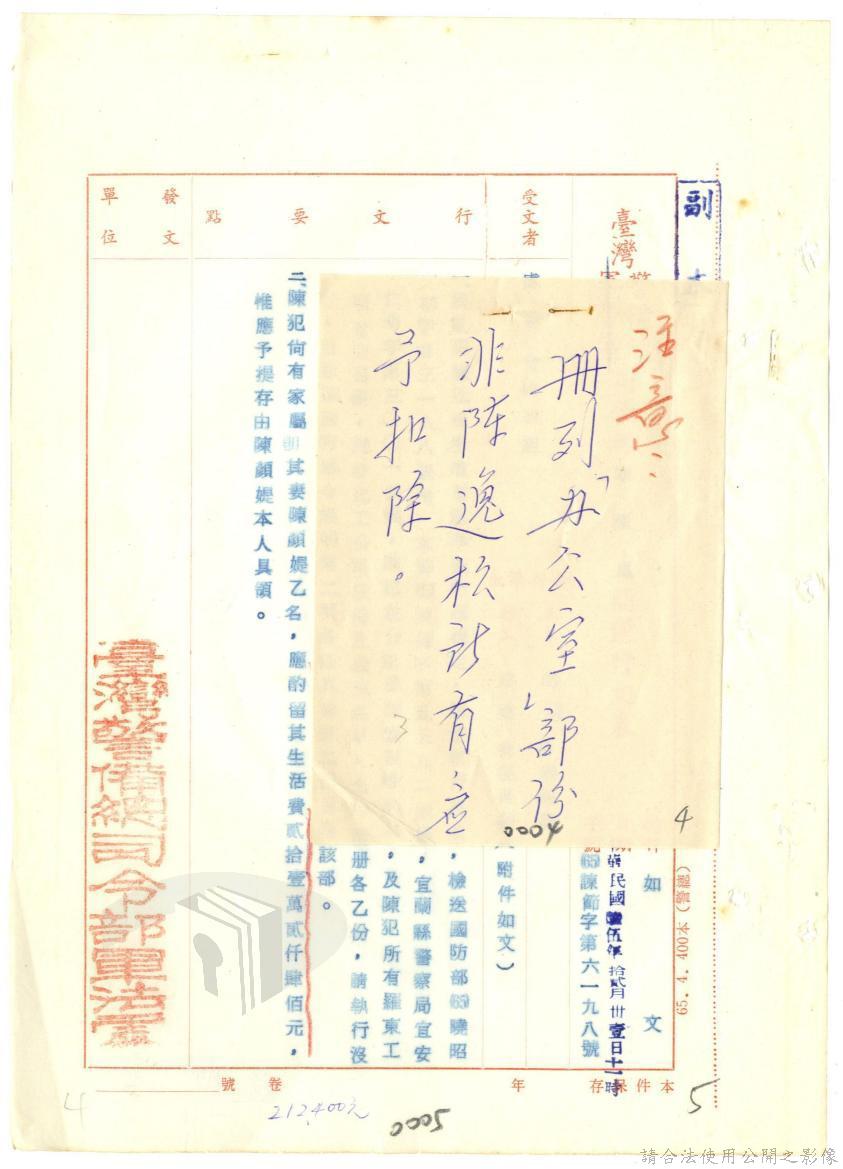 副
臺灣
受文者
行文要點
發文單位
注意
冊列「办公室」部份
非陈逸松所有应
予扣除。
4
0004
如文
民國陸伍年拾貳月卅壹日十一時
65諫節字第六一九八號
附件如文）
，檢送國防部65曉昭
，宜蘭縣警察局宜安
，及陳犯所有羅東工
册各乙份，請執行沒
該部。
二、陳犯尙有家屬卽其妻陳顏媞乙名，應酌留其生活費貳拾壹萬貳仟肆佰元，
惟應予提存由陳顏媞本人具領。
臺灣警備總司令部軍法處
65. 4. 400本（警總）
本件保存
年
卷
號
212400元
0005
5
4
請合法使用公開之影像